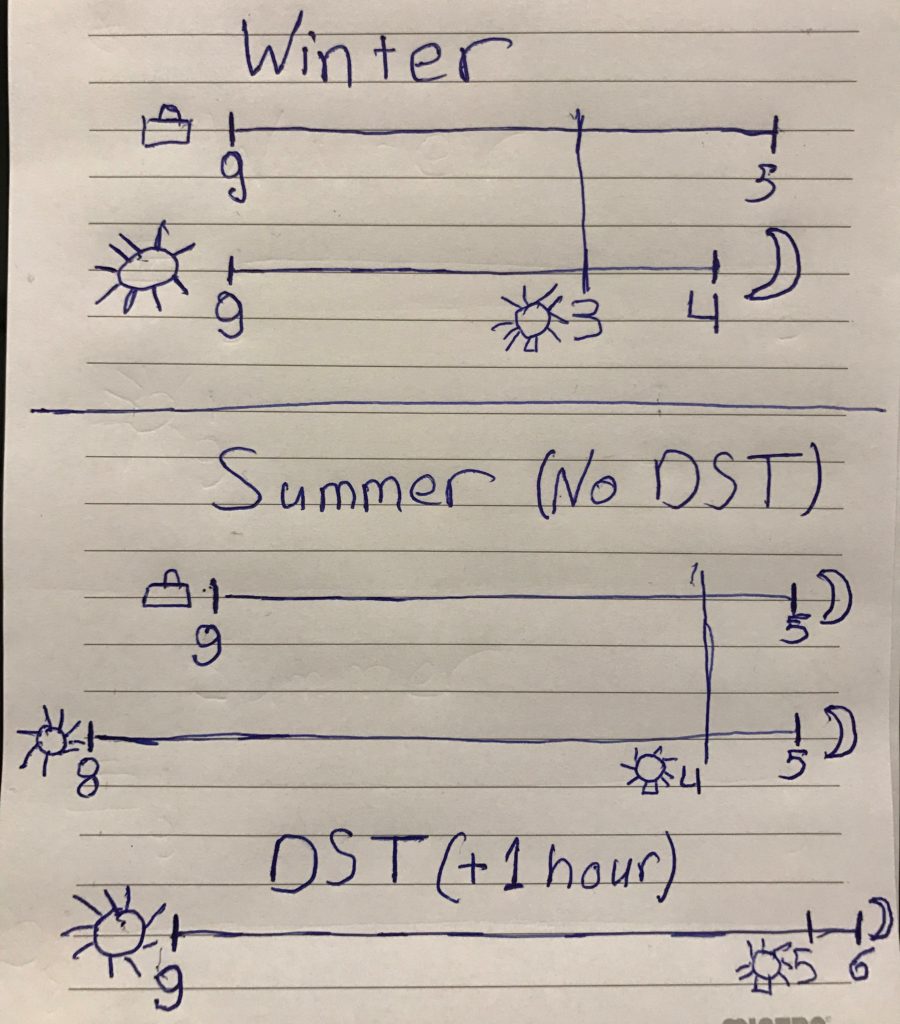 Winter
9 5
9 3 4
Summer (No DST)
9 5
8 4 5
DST (+1 hour)
9 5 6